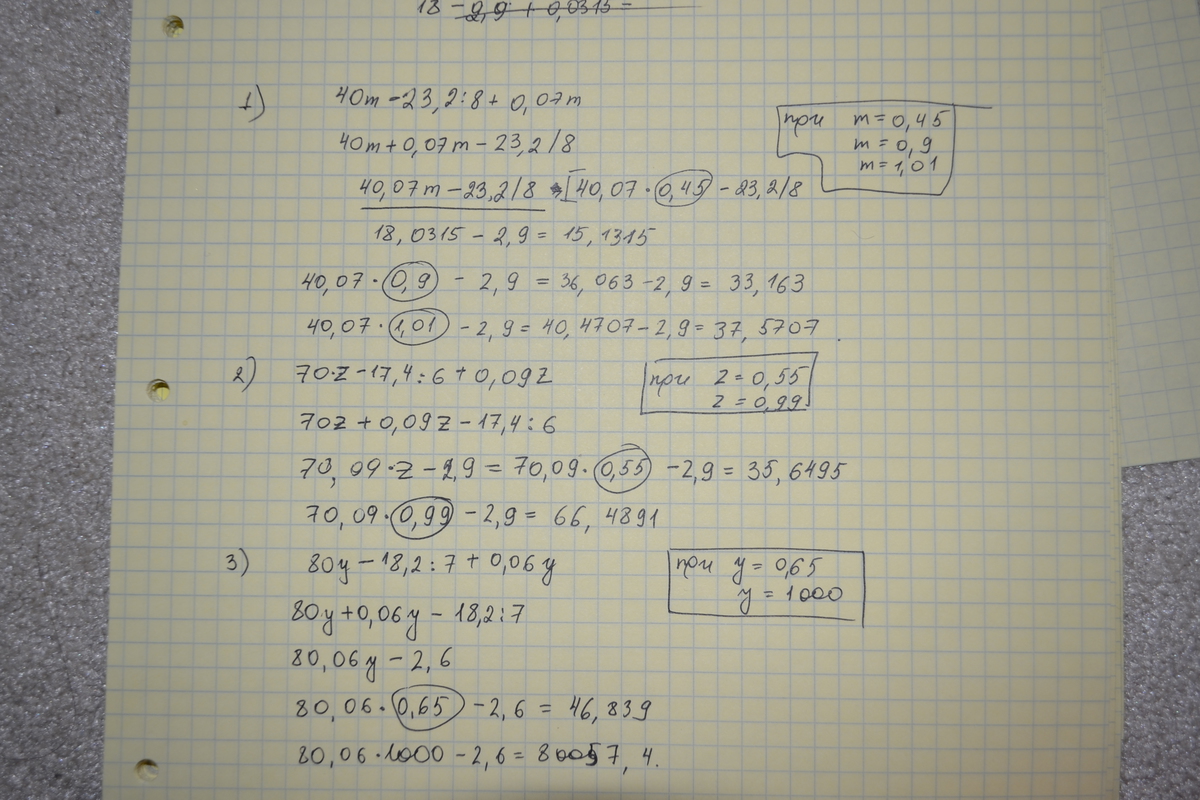 18 - 2,9 + 0,0315 =
1) 40m - 23,2:8 + 0,07m
при m = 0,45
m = 0,9
m = 1,01
40m + 0,07m - 23,2/8
40,07m - 23,2/8 40,07 · 0,45 - 23,2/8
18,0315 - 2,9 = 15,1315
40,07 · 0,9 - 2,9 = 36,063 - 2,9 = 33,163
40,07 · 1,01 - 2,9 = 40,4707 - 2,9 = 37,5707.
2) 70·z - 17,4:6 + 0,09z
при z = 0,55
z = 0,99
70z + 0,09z - 17,4:6
70,09·z - 2,9 = 70,09 · 0,55 - 2,9 = 35,6495
70,09 · 0,99 - 2,9 = 66,4891
3) 80y - 18,2:7 + 0,06y
при y = 0,65
y = 1000
80y + 0,06y - 18,2:7
80,06y - 2,6
80,06 · 0,65 - 2,6 = 46,839
80,06 · 1000 - 2,6 = 80057,4.